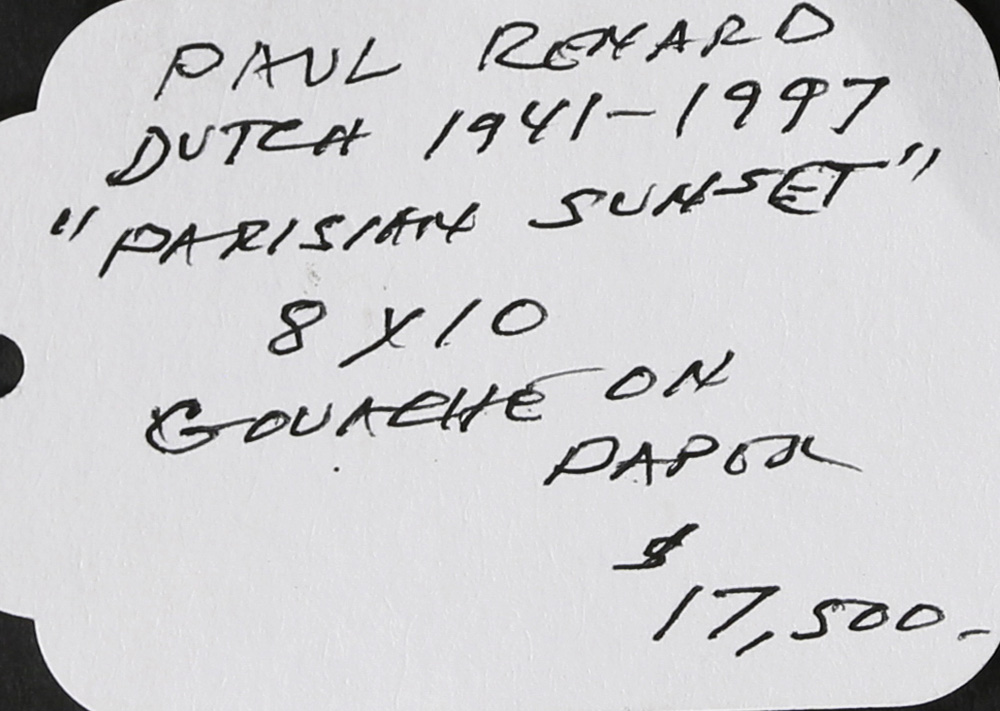 PAUL RENARD
DUTCH 1941-1997
"PARISIAN SUNSET"
8 X 10
GOUACHE ON
PAPER
$
17,500.-